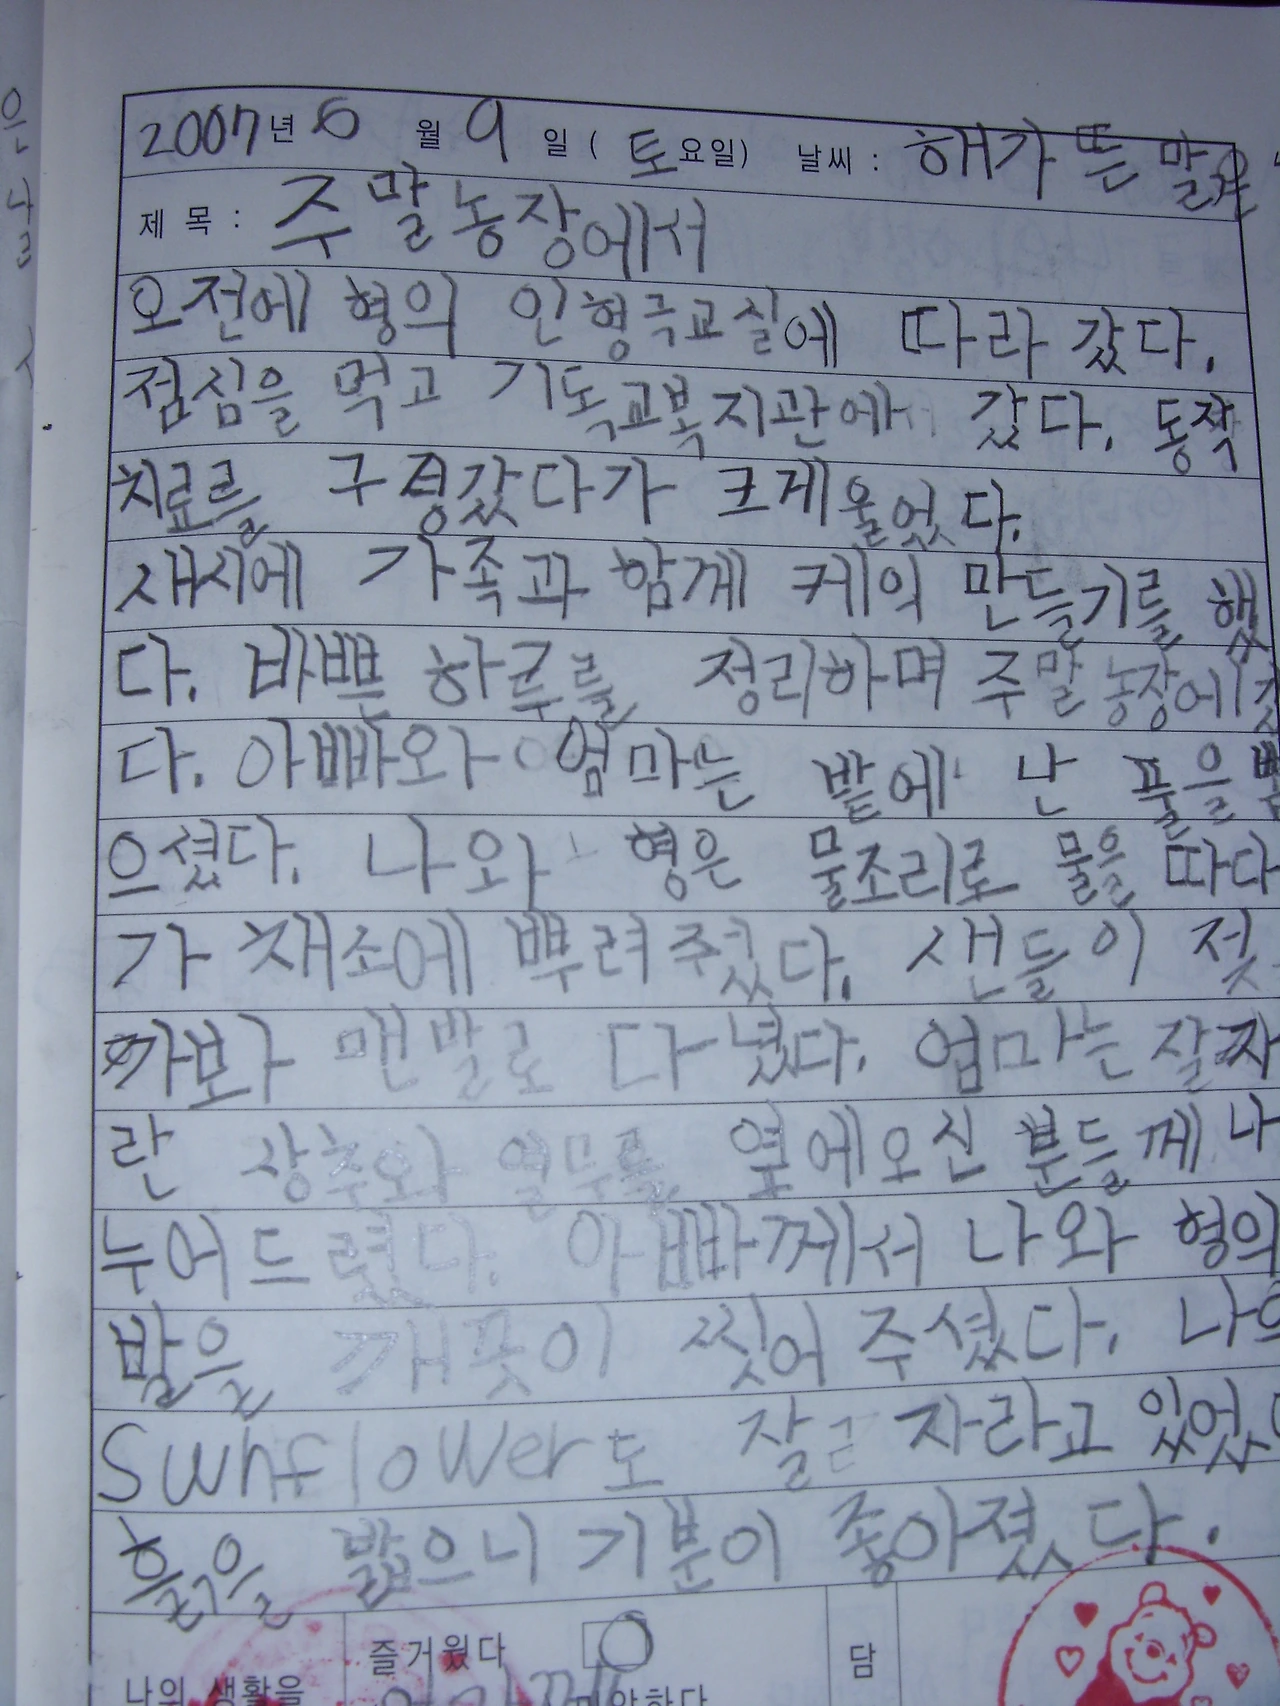 2007년 6월 9일 (토요일) 날씨 : 해가 뜬 맑은
제 목 : 주말농장에서
오전에 형의 인형극교실에 따라 갔다.
점심을 먹고 기독교복지관에 갔다. 동작
치료를 구경갔다가 크게 울었다.
새시에 가족과 함께 케익 만들기를 했
다. 바쁜 하루를 정리하며 주말농장에 갔
다. 아빠와 엄마는 밭에 난 풀을 뽑
으셨다. 나와 형은 물조리로 물을 따다
가 채소에 뿌려주었다. 샌들이 젖
까보아 맨발로 다녔다. 엄마는 잘자
란 상추와 열무를 옆에오신 분들께 나
누어드렸다. 아빠께서 나와 형의
발을 깨끗이 씻어 주셨다. 나의
Sunflower도 잘 자라고 있었다
흙을 밟으니 기분이 좋아졌다.
즐거웠다
담
나의 생활을